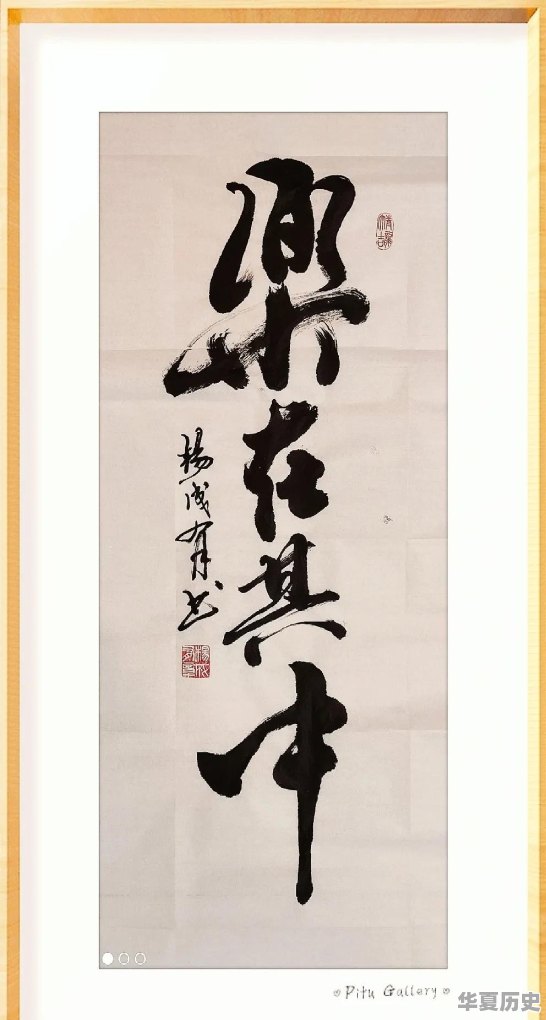 樂在其中
楊成有书
Pitu Gallery
华夏历史